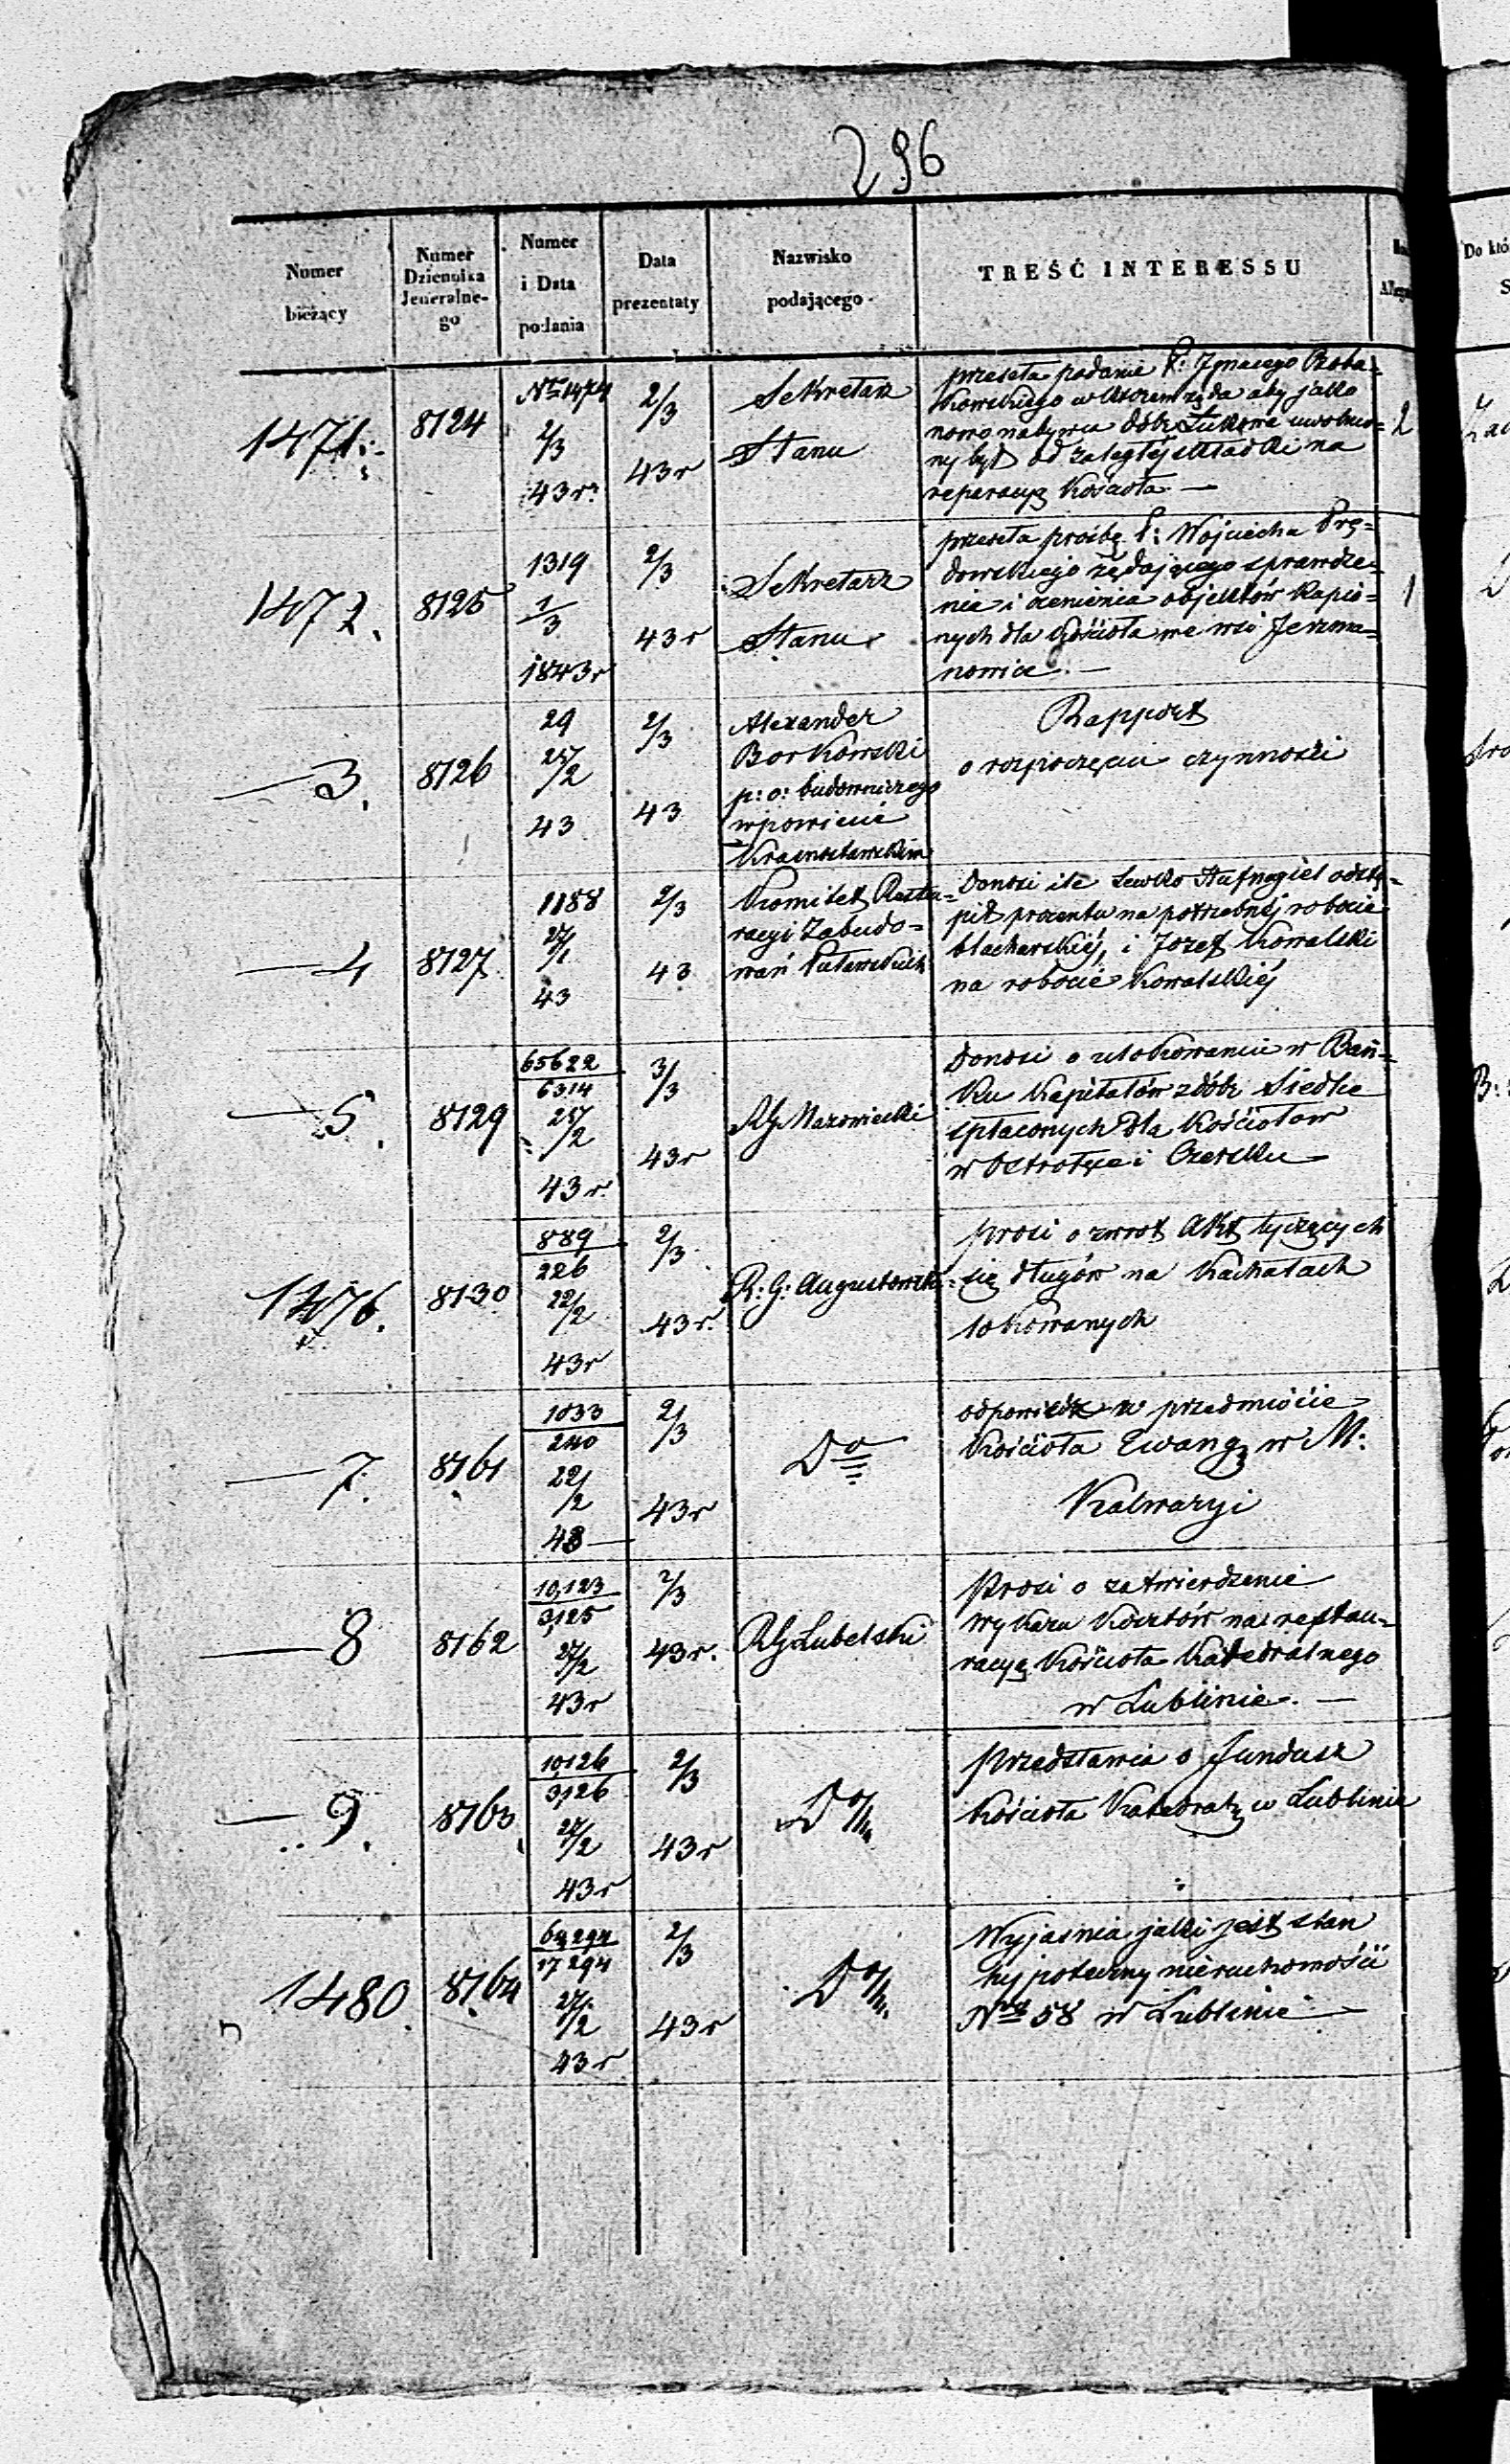 296
Numer
bieżący
Numer
Dziennika
Jeneralne-
go
Numer
i Data
podania
Data
prezentaty
Nazwisko
podającego
TREŚĆ INTERESSU
Do któ
1471.
8124
Nr 1474
2/3
43 r.
2/3
43 r
Sekretarz
Stanu
przesła podanie P: Ignacego
kowskiego w którem żąda aby jako
nowo nabywca dóbr Łukowa uwolnio-
ny był od zaległéj składki na
reperacyę kościoła —
2
1472.
8125
1319
1/3
1843 r
2/3
43 r
Sekretarz
Stanu
przesła prośbę P: Wojciecha Prę-
dowskiego żądającego sprawdze-
nia i ocenienia objektów kupio-
nych dla kościoła we wsi Jerzma-
nowice. —
1
— 3.
8126
29
25/2
43
2/3
43
Alexander
Borkowski
p: o: budowniczego
w powiecie
Krasnostawskim
Rapport
o rozpoczęciu czynności
— 4
8127
1188
27/1
43
2/3
43
Komitet Resta-
racyi Zabudo-
wań Puławskich
Donosi ile Lewko Hufnagiel odstą-
pił procentu na potrzebnéj robocie
blacharskiéj, i Jozef Kowalski
na robocie Kowalskiéj
— 5.
8129
65622
6314
25/2
43 r.
3/3
43 r
RG Mazowiecki
Donosi o ulokowaniu w Ban-
ku Kapitałów z dóbr Siedlce
spłaconych dla Kościołów
w Ostrołęce i Czersku —
1476.
8130
889
226
22/2
43 r
2/3
43 r.
R: G: Augustowski
prosi o zwrot Akt tyczących
się długów na Kahałach
lokowanych
— 7.
8161
1033
240
22/2
43 —
2/3
43 r
Do
odpowiedź w przedmiocie
Kościoła Ewang w M:
Kalwaryi
— 8
8162
10,123
3,125
27/2
43 r
2/3
43 r.
RG Lubelski
Prosi o zatwierdzenie
wykazu kosztów na restau-
racyę Kościoła Katedralnego
w Lublinie. —
— 9.
8163
10126
3,126
27/2
43 r
2/3
43 r
Do
Przedstawia o fundusz
Kościoła Katedral w Lublinie
1480
8164
17294
27/2
43 r
2/3
43 r
Do
Wyjaśnia jaki jest stan
hypoteczny nieruchomości
Nr 58 w Lublinie —